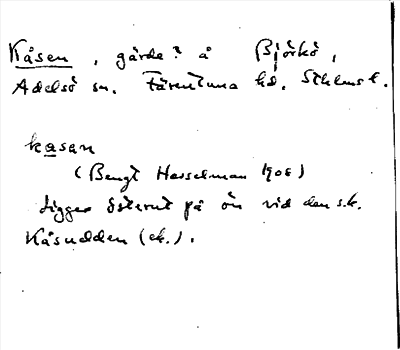 Kåsen, gärde? å Björkö,
Adelsö sn. Färentuna hd. Sthlms l.
kasan
(Bengt Hesselman 1905)
Ligger österut på ön vid den s.k.
Kåsudden (ek.).